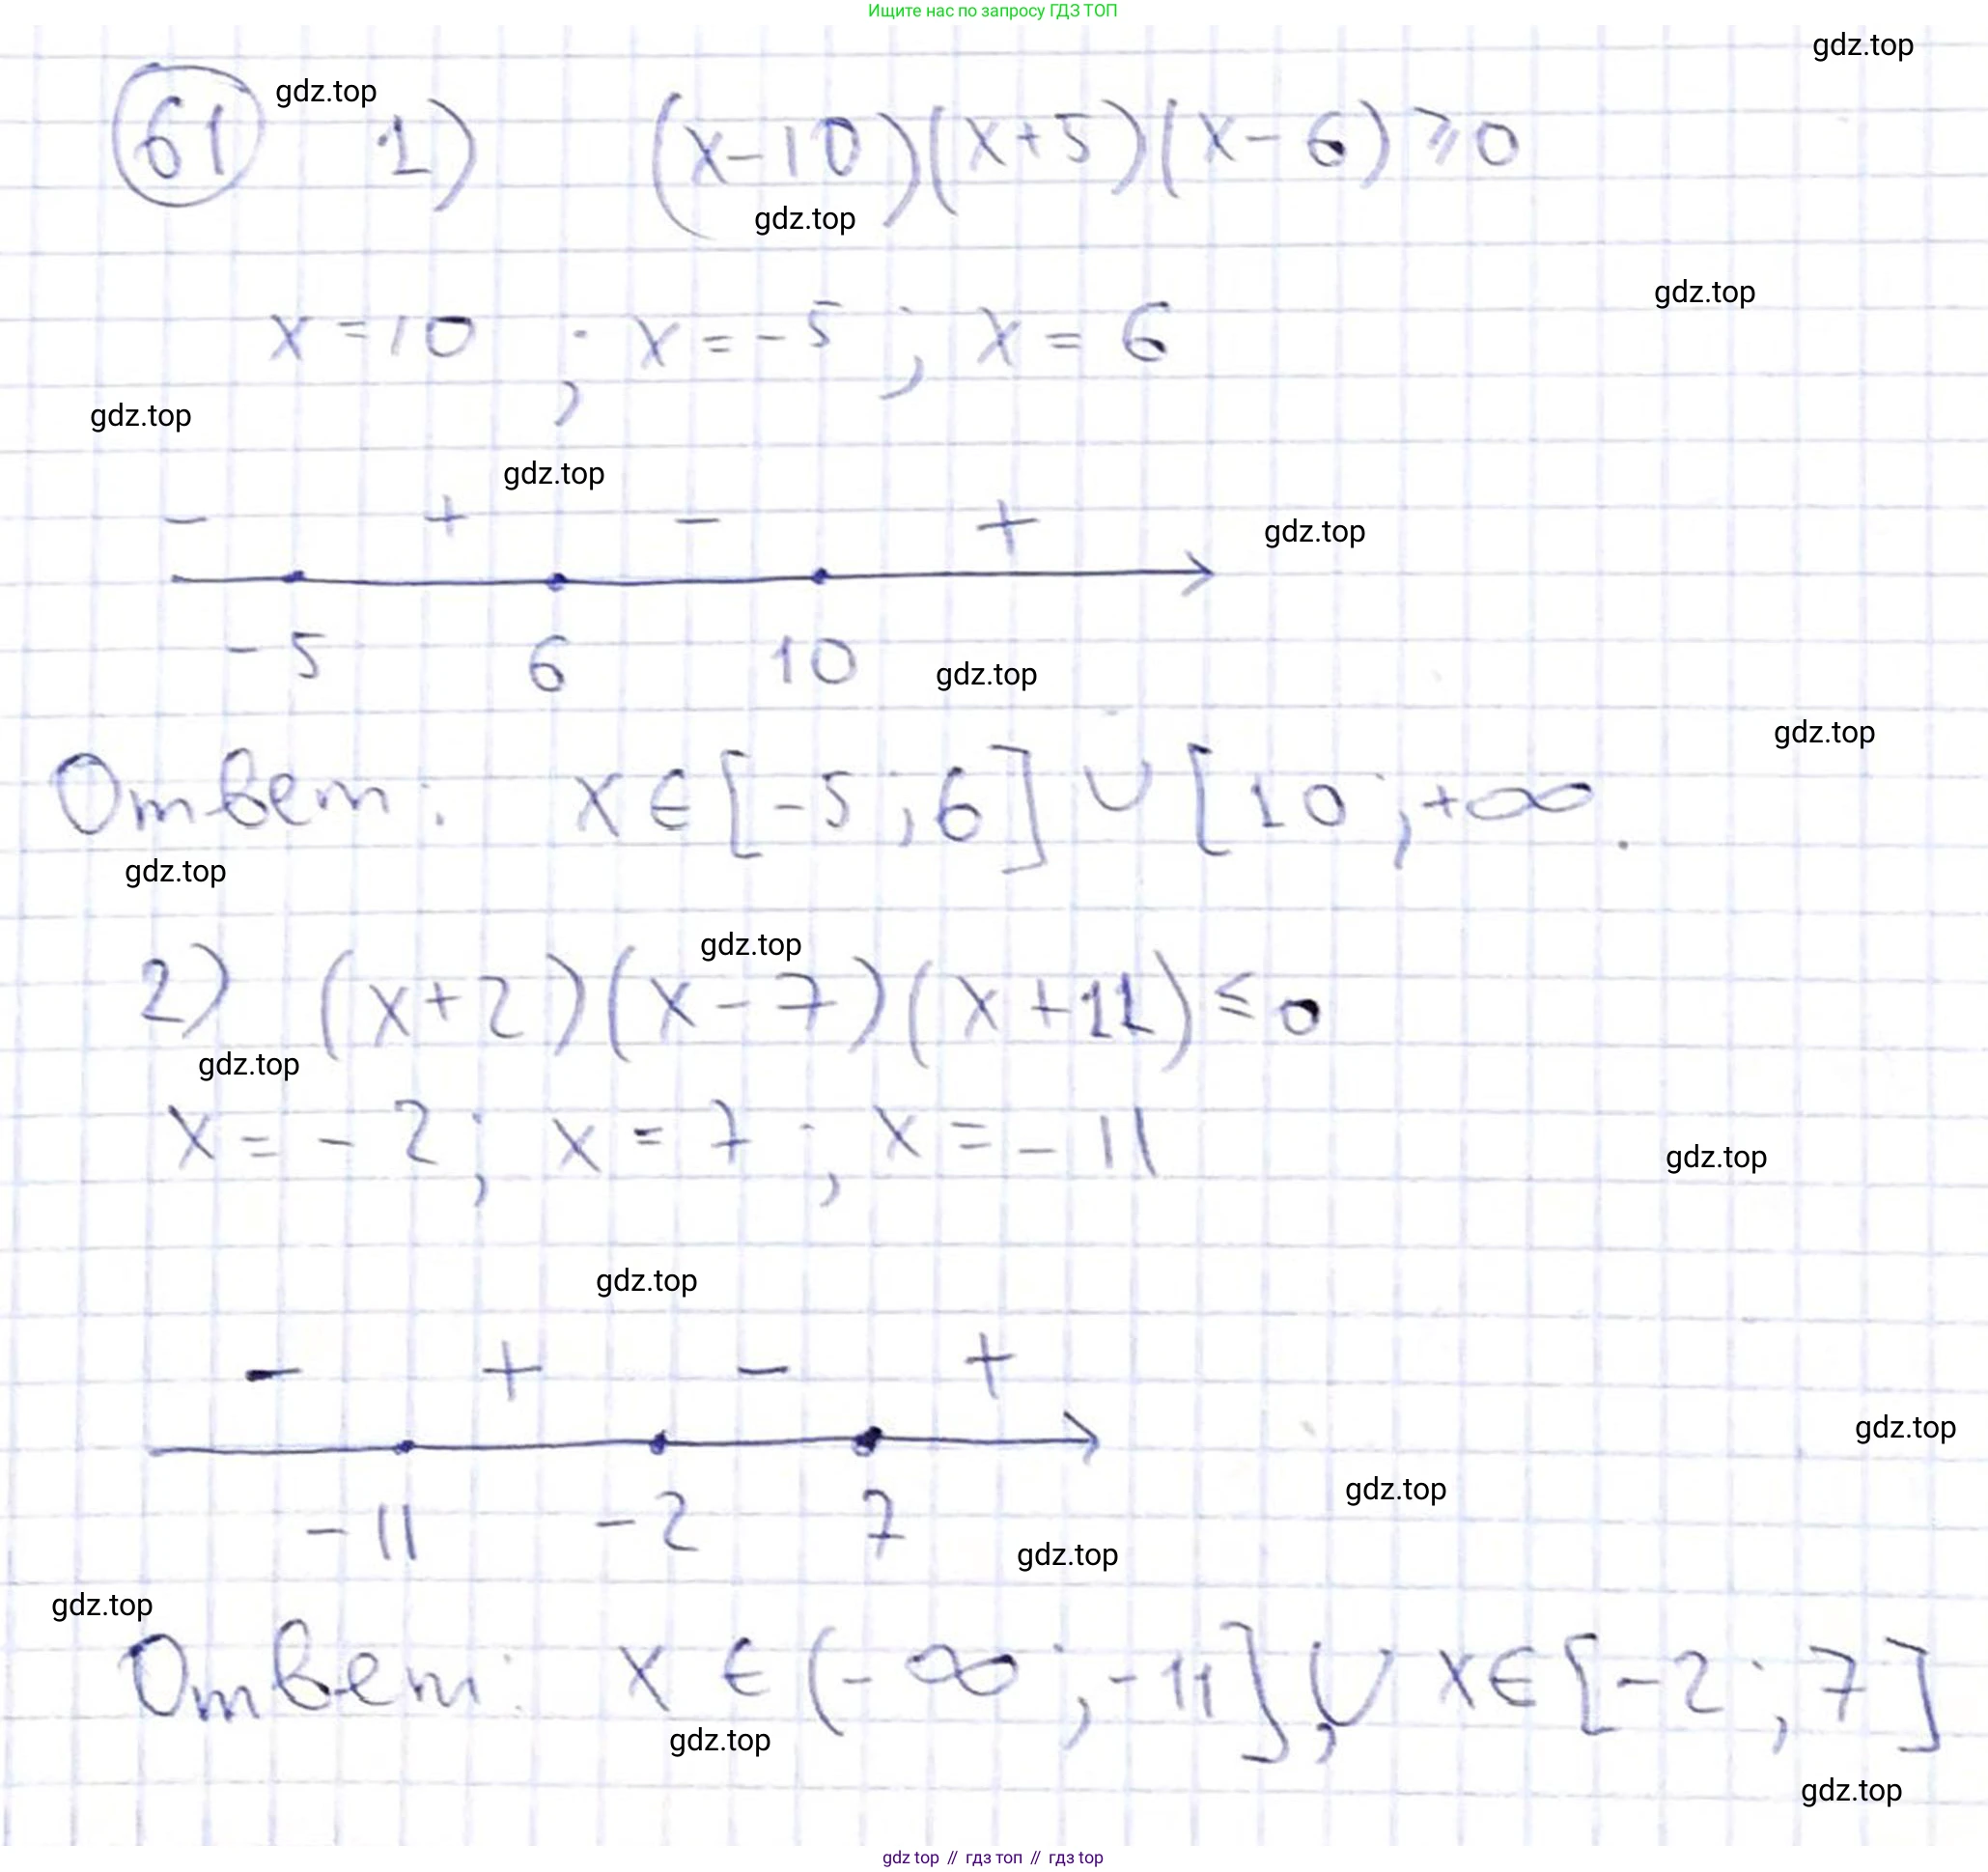 Ищите нас по запросу ГДЗ ТОП
gdz.top
gdz.top
61 1) (x-10)(x+5)(x-6)⩾0
gdz.top
gdz.top
x=10 ; x=-5 ; x=6
gdz.top
gdz.top
- + - +
gdz.top
-5 6 10
gdz.top
gdz.top
Ответ: x∈[-5;6]∪[10;+∞.
gdz.top
gdz.top
2) (x+2)(x-7)(x+11)≤0
gdz.top
x=-2; x=7; x=-11
gdz.top
gdz.top
- + - +
gdz.top
gdz.top
-11 -2 7
gdz.top
gdz.top
Ответ: x∈(-∞;-11],∪ x∈[-2;7]
gdz.top
gdz.top
gdz top // гдз топ // гдз top